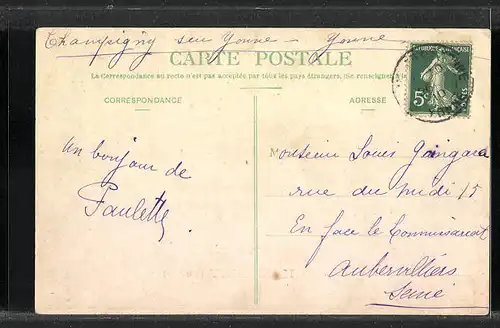 Champigny sur Yonne — Yonne
CARTE POSTALE
La Correspondance au recto n'est pas acceptée par tous les pays étrangers. (Se renseigner
CORRESPONDANCE
ADRESSE
REPUBLIQUE FRANÇAISE
5c
POSTES
Un bonjour de
Paulette
Monsieur Louis
rue du midi 15
En face le Commissariat
Aubervilliers
Seine